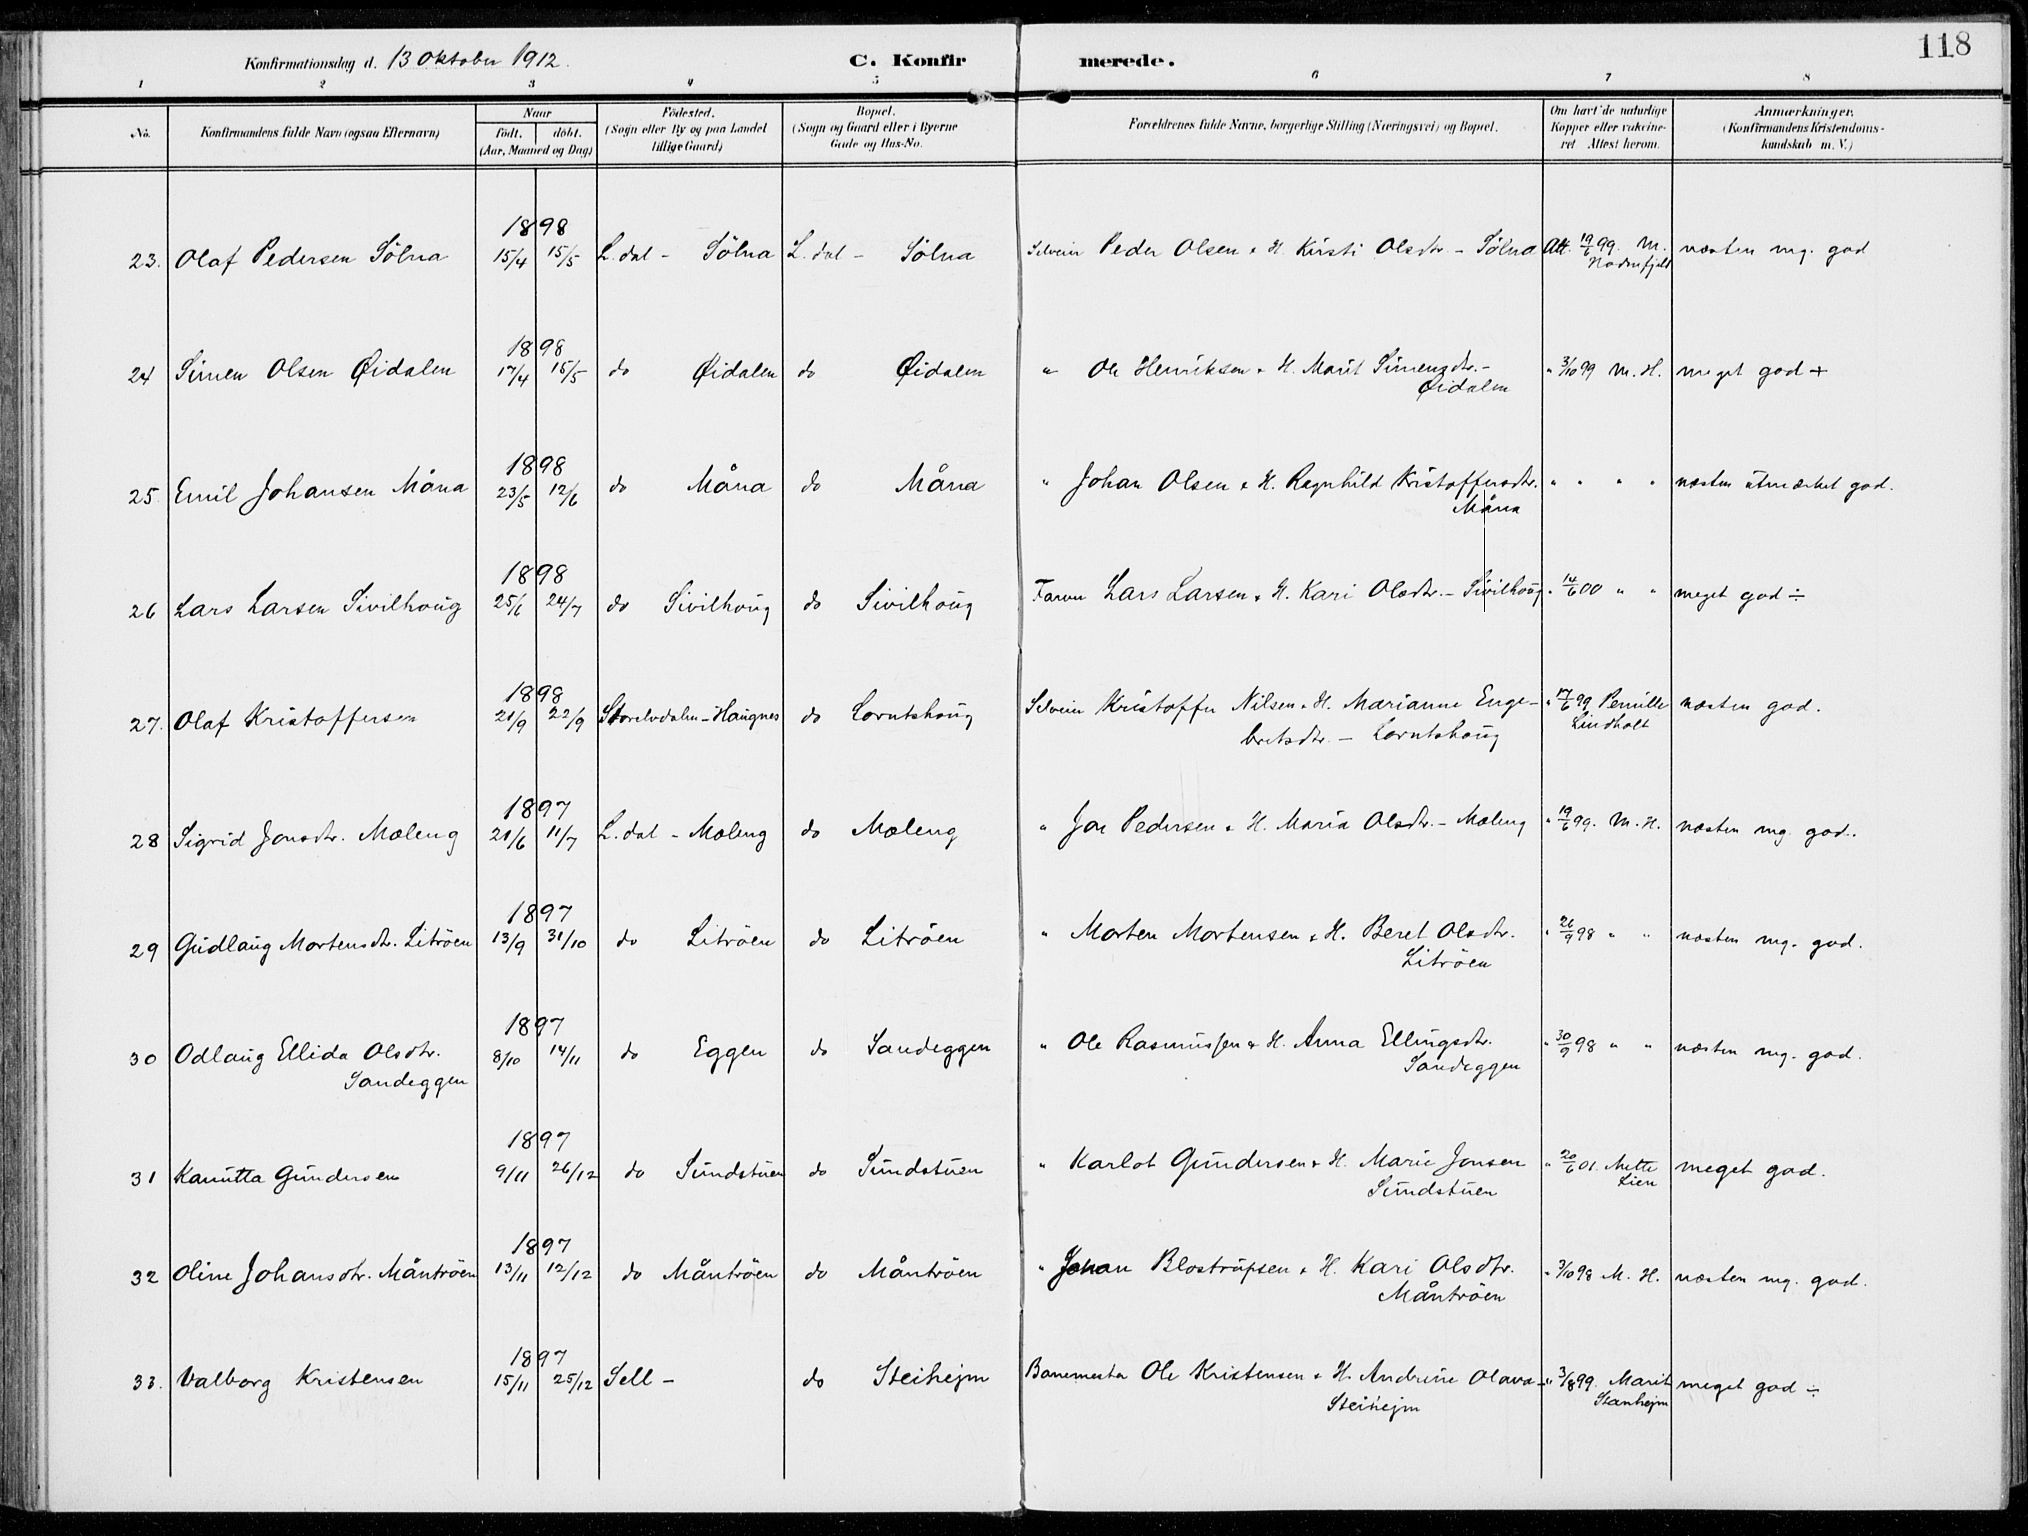 118
Konfirmationsdag d. 13 Oktober 1912. C. Konfir merede.
1 2 3 4 5 6 7 8
No. Konfirmandens fulde Navn (ogsaa Efternavn) Naar født. døbt. (Aar, Maaned og Dag) Fødested. (Sogn eller By og paa Landet tillige Gaard) Bopæl. (Sogn og Gaard eller i Byerne Gade og Hus-No. Forældrenes fulde Navne, borgerlige Stilling (Næringsvei) og Bopæl. Om havt de naturlige Kopper eller vakcineret Attest herom. Anmærkninger. (Konfirmandens Kristendomskundskab m. V.)
1898
23. Olaf Pedersen Sölna 15/4 15/5 L.dal - Sölna L.dal - Sölna Selveier Peder Olsen & H. Kirsti Olsdtr. - Sölna Att. 19/6 99. M. næsten mg. god
Nordenfjeld
1898
24 Simen Olsen Øidalen 17/4 15/5 do Øidalen do Øidalen " Ole Henriksen & H. Marit Simensdtr. - " 3/10 99 M. H. meget god +
Øidalen
1898
25. Emil Johansen Måna 23/5 12/6 do Måna do Måna " Johan Olsen & H. Ragnhild Kristoffersdtr. " " " " næsten utmærket god.
Måna
1898
26 Lars Larsen Sivilhoug 25/6 24/7 do Sivilhoug do Sivilhoug Farver Lars Larsen & H. Kari Olsdtr. - Sivilhoug " 14/6 00 " " meget god ÷
1898
27. Olaf Kristoffersen 21/9 22/9 Storelvdalen - Haugnes do Lorntshoug Selveier Kristoffer Nilsen & H. Marianne Enge- " 17/6 99 Pernille næsten god.
bretsdtr. - Lorntshoug Lindholt
1897
28 Sigrid Jonsdtr. Mæleng 21/6 11/7 L.dal - Mæleng do Mæleng " Jon Pedersen & H. Maria Olsdtr. - Mæleng " 19/6 99. M. H. næsten mg. god.
1897
29 Gudlaug Mortensdtr. Litröen 13/9 31/10 do Litröen do Litröen " Morten Mortensen & H. Beret Olsdtr. " 26/9 98 " " næsten mg. god.
Litröen
1897
30 Odlaug Ellida Olsdtr. 8/10 14/11 do Eggen do Sandeggen " Ole Rasmussen & H. Anna Ellingsdtr. " 30/9 98 " " næsten mg. god.
Sandeggen Sandeggen
1897
31 Kanutta Gundersen 9/11 26/12 do Sundstuen do Sundstuen " Karlot Gundersen & H. Marie Jonsen " 20/6 01. Mette meget god.
Sundstuen Lien
1897
32 Oline Johansdtr. Måntröen 13/11 12/12 do Måntröen do Måntröen " Johan Blostrupsen & H. Kari Olsdtr. " 3/10 98 M. H. næsten mg. god.
Måntröen
1897
33. Valborg Kristensen 15/11 25/12 Sell - do Steihejm Banemester Ole Kristensen & H. Andrine Olava - " 3/8 99. Marit meget god ÷
Steihejm Stenhejm